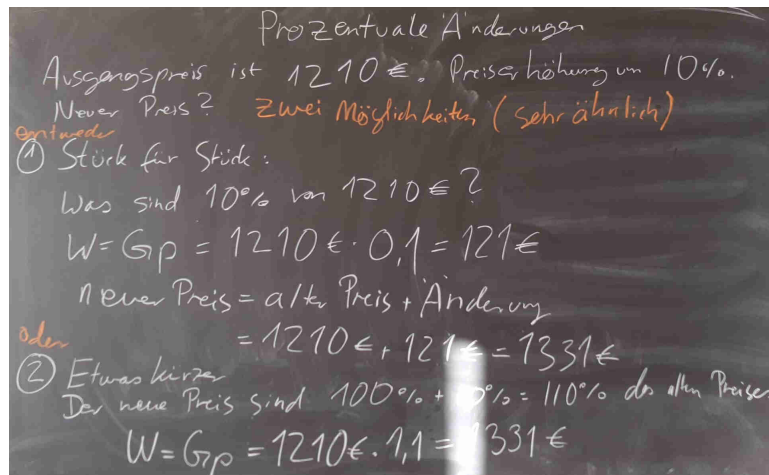 Prozentuale Änderungen
Ausgangspreis ist 1210€. Preiserhöhung um 10%.
Neuer Preis? Zwei Möglichkeiten (sehr ähnlich)
entweder
① Stück für Stück:
Was sind 10% von 1210€?
W=Gp = 1210€·0,1 = 121€
neuer Preis = alter Preis + Änderung
oder
= 1210€ + 121€ = 1331€
② Etwas kürzer
Der neue Preis sind 100% + 10% = 110% des alten Preises
W=Gp = 1210€·1,1 = 1331€